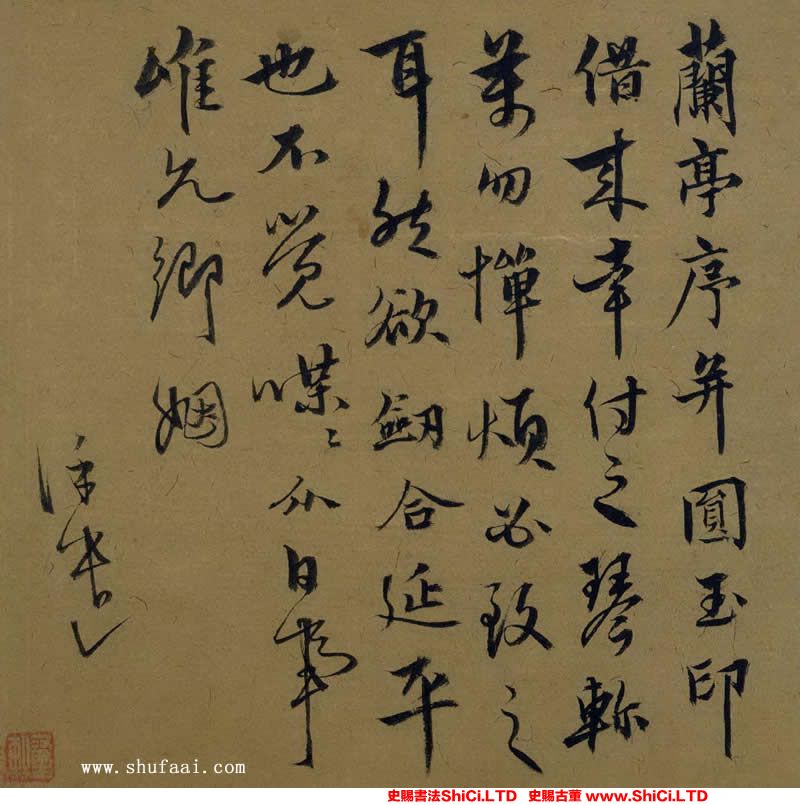 蘭亭序并圓玉印
借來幸付之琴軫
萬勿憚煩必致之
耳然欲劒合延平
也不覺喋〻
唯允卿姻
www.shufaai.com
史賜書法ShiCi.LTD 史賜古董 www.ShiCi.LTD